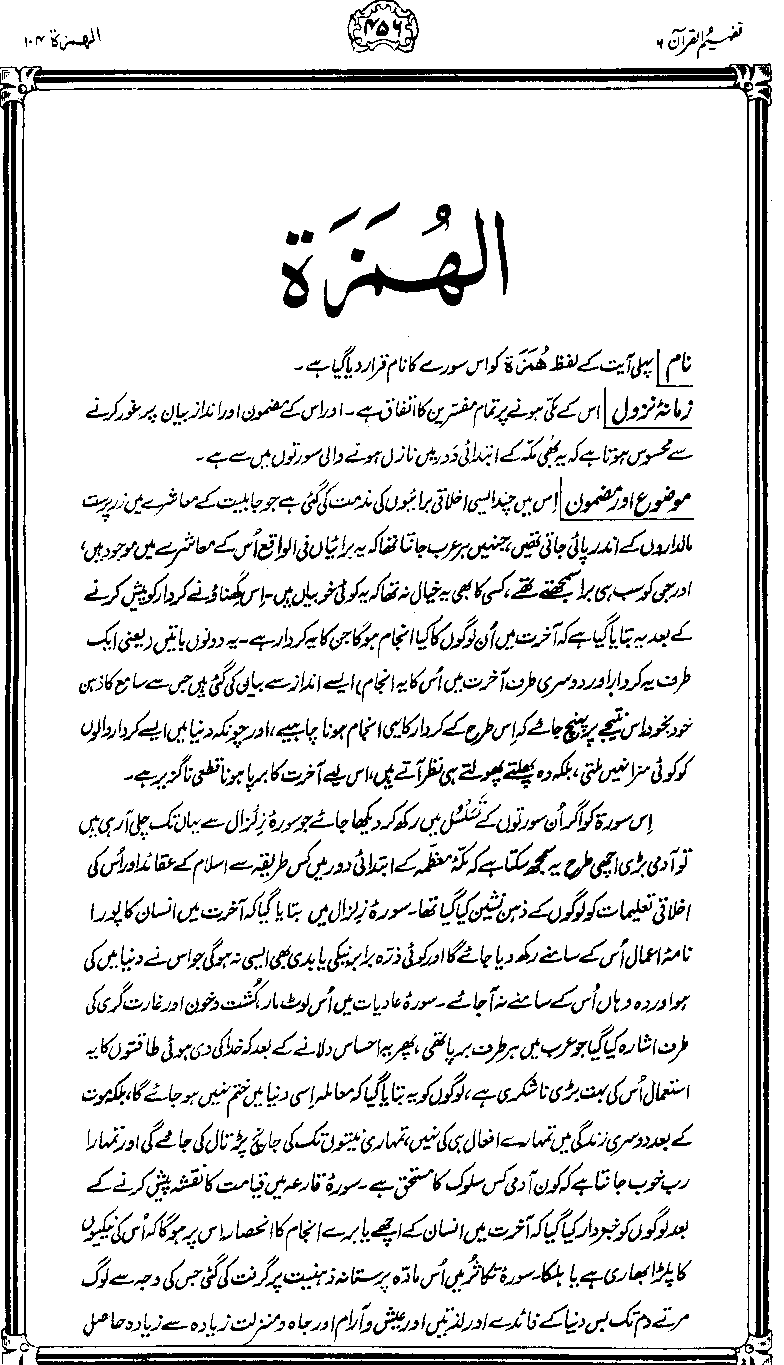 تفہیم القرآن ۶
۴۵۶
الهمزة ۱۰۴
الهُمَزَة
نام پہلی آیت کے لفظ هُمَزَة کو اس سورے کا نام قرار دیا گیا ہے۔
زمانۂ نزول اس کے مکی ہونے پر تمام مفسرین کا اتفاق ہے۔ اور اس کے مضمون اور انداز بیان پر غور کرنے
سے محسوس ہوتا ہے کہ یہ بھی مکہ کے ابتدائی دَور میں نازل ہونے والی سورتوں میں سے ہے۔
موضوع اور مضمون اِس میں چند ایسی اخلاقی برائیوں کی مذمت کی گئی ہے جو جاہلیت کے معاشرے میں زر پرست
مالداروں کے اندر پائی جاتی تھیں، جنہیں ہر عرب جانتا تھا کہ یہ برائیاں فی الواقع اُس کے معاشرے میں موجود ہیں،
اور جن کو سب ہی برا سمجھتے تھے، کسی کا بھی یہ خیال نہ تھا کہ یہ کوئی خوبیاں ہیں۔ اِس گھناؤنے کردار کو پیش کرنے
کے بعد یہ بتایا گیا ہے کہ آخرت میں اُن لوگوں کا کیا انجام ہو گا جن کا یہ کردار ہے۔ یہ دونوں باتیں (یعنی ایک
طرف یہ کردار اور دوسری طرف آخرت میں اُس کا یہ انجام) ایسے انداز سے بیان کی گئی ہیں جس سے سامع کا ذہن
خود بخود اس نتیجے پر پہنچ جائے کہ اِس طرح کے کردار کا یہی انجام ہونا چاہیے، اور چونکہ دنیا میں ایسے کردار والوں
کو کوئی سزا نہیں ملتی، بلکہ وہ پھلتے پھولتے ہی نظر آتے ہیں، اس لیے آخرت کا برپا ہونا قطعی ناگزیر ہے۔
اِس سورۃ کو اگر اُن سورتوں کے تَسَلسُل میں رکھ کر دیکھا جائے جو سورۂ زِلزال سے یہاں تک چلی آ رہی ہیں
تو آدمی بڑی اچھی طرح یہ سمجھ سکتا ہے کہ مکۂ معظمہ کے ابتدائی دور میں کس طریقہ سے اسلام کے عقائد اور اُس کی
اخلاقی تعلیمات کو لوگوں کے ذہن نشین کیا گیا تھا۔ سورۂ زلزال میں بتایا گیا کہ آخرت میں انسان کا پورا
نامۂ اعمال اُس کے سامنے رکھ دیا جائے گا اور کوئی ذرّہ برابر نیکی یا بدی بھی ایسی نہ ہوگی جو اس نے دنیا میں کی
ہو اور وہ وہاں اُس کے سامنے نہ آ جائے۔ سورۂ عادیات میں اُس لوٹ مار، کُشت و خون اور غارت گری کی
طرف اشارہ کیا گیا جو عرب میں ہر طرف برپا تھی، پھر یہ احساس دلانے کے بعد کہ خدا کی دی ہوئی طاقتوں کا یہ
استعمال اُس کی بہت بڑی ناشکری ہے، لوگوں کو یہ بتایا گیا کہ معاملہ اِسی دنیا میں ختم نہیں ہو جائے گا، بلکہ موت
کے بعد دوسری زندگی میں تمہارے افعال ہی کی نہیں، تمہاری نیتوں تک کی جانچ پڑتال کی جائے گی اور تمہارا
رب خوب جانتا ہے کہ کون آدمی کس سلوک کا مستحق ہے۔ سورۂ قارعہ میں قیامت کا نقشہ پیش کرنے کے
بعد لوگوں کو خبردار کیا گیا کہ آخرت میں انسان کے اچھے یا برے انجام کا انحصار اِس پر ہو گا کہ اُس کی نیکیوں
کا پلڑا بھاری ہے یا ہلکا۔ سورۂ تکاثر میں اُس مادّہ پرستانہ ذہنیت پر گرفت کی گئی جس کی وجہ سے لوگ
مرتے دم تک بس دنیا کے فائدے اور لذتیں اور عیش و آرام اور جاہ و منزلت زیادہ سے زیادہ حاصل